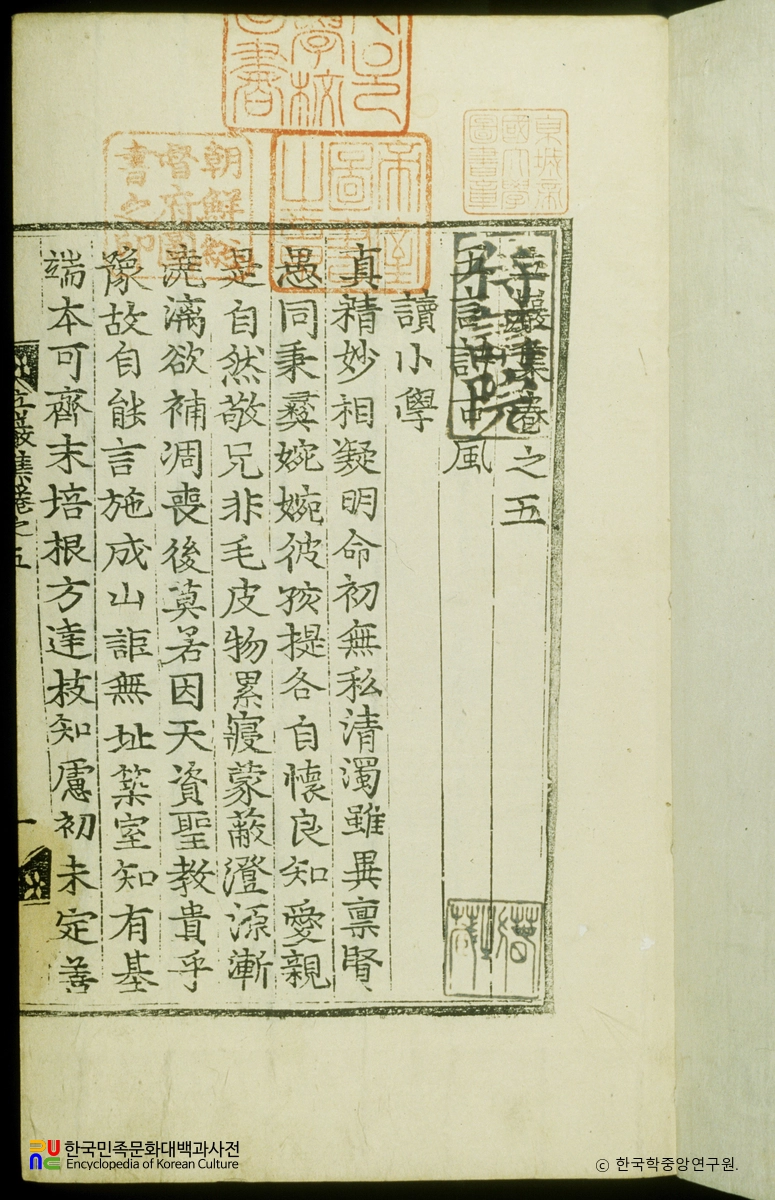 京城帝
國大學
圖書章
朝鮮總
督府圖
書之印
立巖集卷之五
五言詩古風
讀小學
真精妙相凝明命初無私清濁雖異禀賢
愚同秉彛婉婉彼孩提各自懷良知愛親
是自然敬兄非毛皮物累寢蒙蔽澄源漸
澆漓欲補凋喪後莫若因天資聖教貴乎
豫故自能言施成山詎無址築室知有基
端本可齊末培根方達枝知慮初未定善
立巖集卷之五
一
한국민족문화대백과사전
Encyclopedia of Korean Culture
© 한국학중앙연구원.